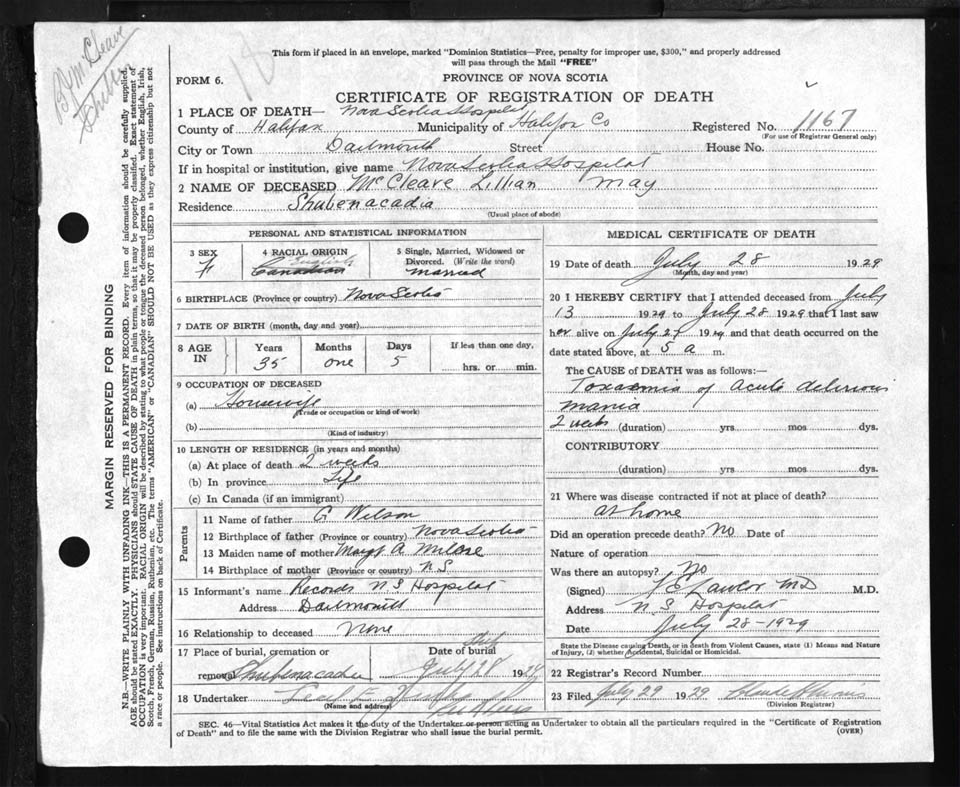 McCleave
This form if placed in an envelope, marked "Dominion Statistics—Free, penalty for improper use, $300," and properly addressed
will pass through the Mail "FREE"
FORM 6.
PROVINCE OF NOVA SCOTIA
CERTIFICATE OF REGISTRATION OF DEATH
1 PLACE OF DEATH— Nova Scotia Hospital
County of Halifax Municipality of Halifax Co Registered No. 1167
(For use of Registrar General only)
City or Town Dartmouth Street House No.
If in hospital or institution, give name Nova Scotia Hospital
2 NAME OF DECEASED McCleave Lillian May
Residence Shubenacadia
(Usual place of abode)
PERSONAL AND STATISTICAL INFORMATION
3 SEX 4 RACIAL ORIGIN 5 Single, Married, Widowed or
Divorced. (Write the word)
F Canadian married
6 BIRTHPLACE (Province or country) Nova Scotia
7 DATE OF BIRTH (month, day and year)
8 AGE IN Years Months Days If less than one day,
35 one 5 hrs. or min.
9 OCCUPATION OF DECEASED
(a) Housewife
(Trade or occupation or kind of work)
(b)
(Kind of industry)
10 LENGTH OF RESIDENCE (in years and months)
(a) At place of death 2 weeks
(b) In province Life
(c) In Canada (if an immigrant)
Parents
11 Name of father G Wilson
12 Birthplace of father (Province or country) Nova Scotia
13 Maiden name of mother A
14 Birthplace of mother (Province or country) N.S.
15 Informant's name Records N S Hospital
Address Dartmouth
16 Relationship to deceased None
17 Place of burial, cremation or Date of burial
removal Shubenacadia July 28 1929
18 Undertaker
(Name and address)
MEDICAL CERTIFICATE OF DEATH
19 Date of death July 28 1929
(Month, day and year)
20 I HEREBY CERTIFY that I attended deceased from July
13 1929 to July 28 1929 that I last saw
her alive on July 27 1929 and that death occurred on
date stated above, at 5 a m.
The CAUSE of DEATH was as follows:—
Toxaemia of acute delirious
mania
2 weeks (duration) yrs mos dys.
CONTRIBUTORY
(duration) yrs mos dys.
21 Where was disease contracted if not at place of death?
at home
Did an operation precede death? No Date of
Nature of operation
Was there an autopsy? No
(Signed) Lawlor MD M.D.
Address N.S. Hospital
Date July 28-1929
State the Disease causing Death, or in death from Violent Causes, state (1) Means and Nature
of Injury, (2) whether Accidental, Suicidal or Homicidal.
22 Registrar's Record Number
23 Filed July 29 1929
(Division Registrar)
SEC. 46—Vital Statistics Act makes it the duty of the Undertaker or person acting as Undertaker to obtain all the particulars required in the "Certificate of Registration
of Death" and to file the same with the Division Registrar who shall issue the burial permit. (OVER)
MARGIN RESERVED FOR BINDING
N.B.—WRITE PLAINLY WITH UNFADING INK—THIS IS A PERMANENT RECORD. Every item of information should be carefully supplied.
AGE should be stated EXACTLY. PHYSICIANS should STATE CAUSE OF DEATH in plain terms, so that it may be properly classified. Exact statement of
OCCUPATION is very important. RACIAL ORIGIN will be described by stating to what people or tongue the deceased person belonged, whether English, Irish,
Scotch, French, German, Russian, Ruthenian, etc. The terms "AMERICAN" or "CANADIAN" SHOULD NOT BE USED as they express citizenship but not
a race or people. See instructions on back of Certificate.